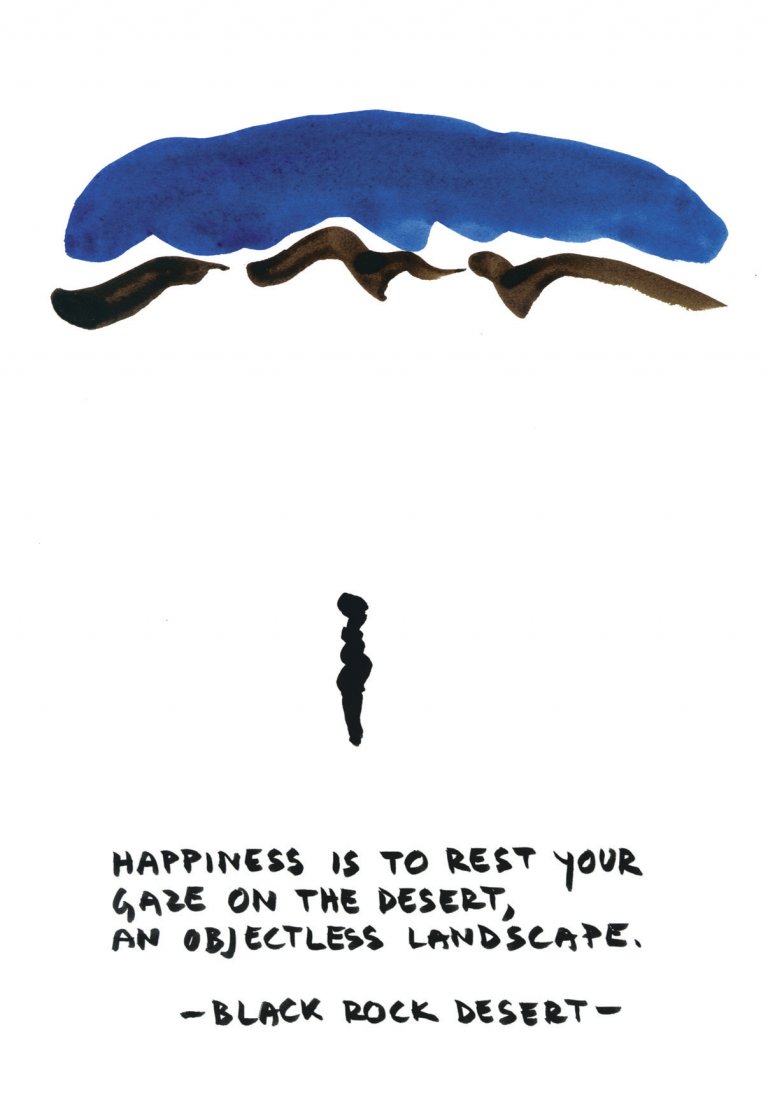 HAPPINESS IS TO REST YOUR
GAZE ON THE DESERT,
AN OBJECTLESS LANDSCAPE.
-BLACK ROCK DESERT-